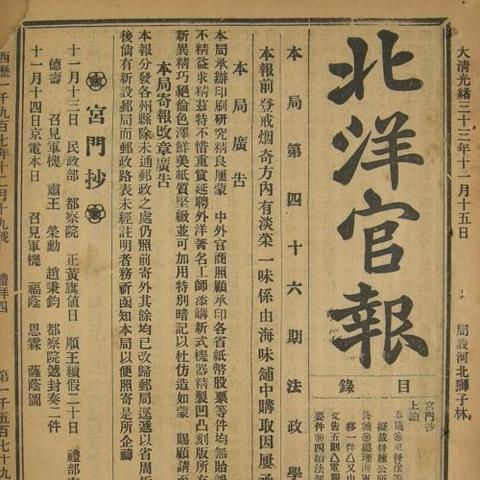 大清光緒三十三年十一月十五日
局設河北獅子林
北洋官報
目錄
宮門抄
上諭
本局第四十六期法政學
本報前登戒烟奇方內有淡菜一味係由海味舖中購取因屢承
本局廣告
本局承辦印刷研究精良屢蒙 中外官商照顧承印各省紙幣股票等件均無貽誤
不精益求精茲特不惜重貲延聘外洋著名工師添購新式機器精製凹凸刻版所有
新異精巧絕倫色澤鮮美紙質堅緻並可加用特別暗記以杜仿造如蒙 賜顧請至
本局寄報改章廣告
本報分發各州縣除未通郵政之處仍照前寄外其餘均已改歸郵局遞以省周折
後倘有新設郵局而郵政路表未經註明者務祈函知本局以便照寄是所企禱
宮門抄
十一月十三日 民政部 都察院 正黃旗值日 順王續假二十日 禮部
德壽 召見軍機 肅王 榮勳 趙秉鈞 都察院遞封奏二件
十一月十四日京電本日 召見軍機 福蔭 恩霖 薩蔭圖
西歷一千九百七年十二月十九號 禮拜四 第一千五百七十九